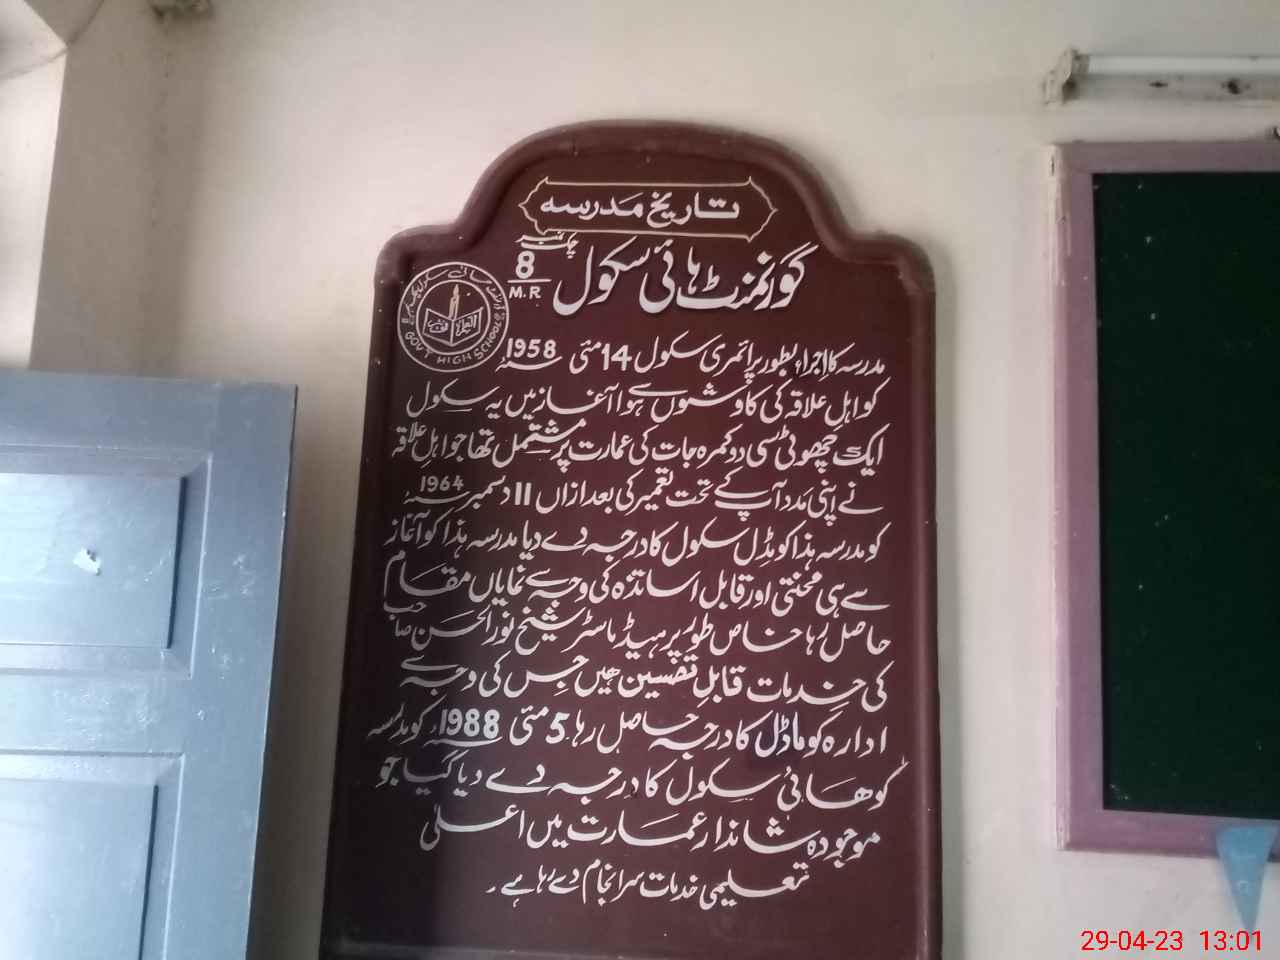 تاریخ مدرسہ
گورنمنٹ ہائی سکول چک نمبر 8 M.R
GOVT HIGH SCHOOL
مدرسہ کا اجراء بطور پرائمری سکول 14 مئی 1958ء
کو اہل علاقہ کی کاوشوں سے ہوا آغاز میں یہ سکول
ایک چھوٹی سی دو کمرہ جات کی عمارت پر مشتمل تھا جو اہل علاقہ
نے اپنی مدد آپ کے تحت تعمیر کی بعد ازاں 11 دسمبر 1964ء
کو مدرسہ ہذا کو مڈل سکول کا درجہ دے دیا مدرسہ ہذا کو آغاز
سے ہی محنتی اور قابل اساتذہ کی وجہ سے نمایاں مقام
حاصل رہا خاص طور پر ہیڈ ماسٹر شیخ نور الحسن صاحب
کی خدمات قابل تفسین ھیں جس کی وجہ سے
ادارہ کو ماڈل کا درجہ حاصل رہا 5 مئی 1988ء کو مدرسہ
کو ھائی سکول کا درجہ دے دیا گیا جو
موجودہ شاندار عمارت میں اعلیٰ
تعلیمی خدمات سرانجام دے رہا ہے ۔
29-04-23 13:01